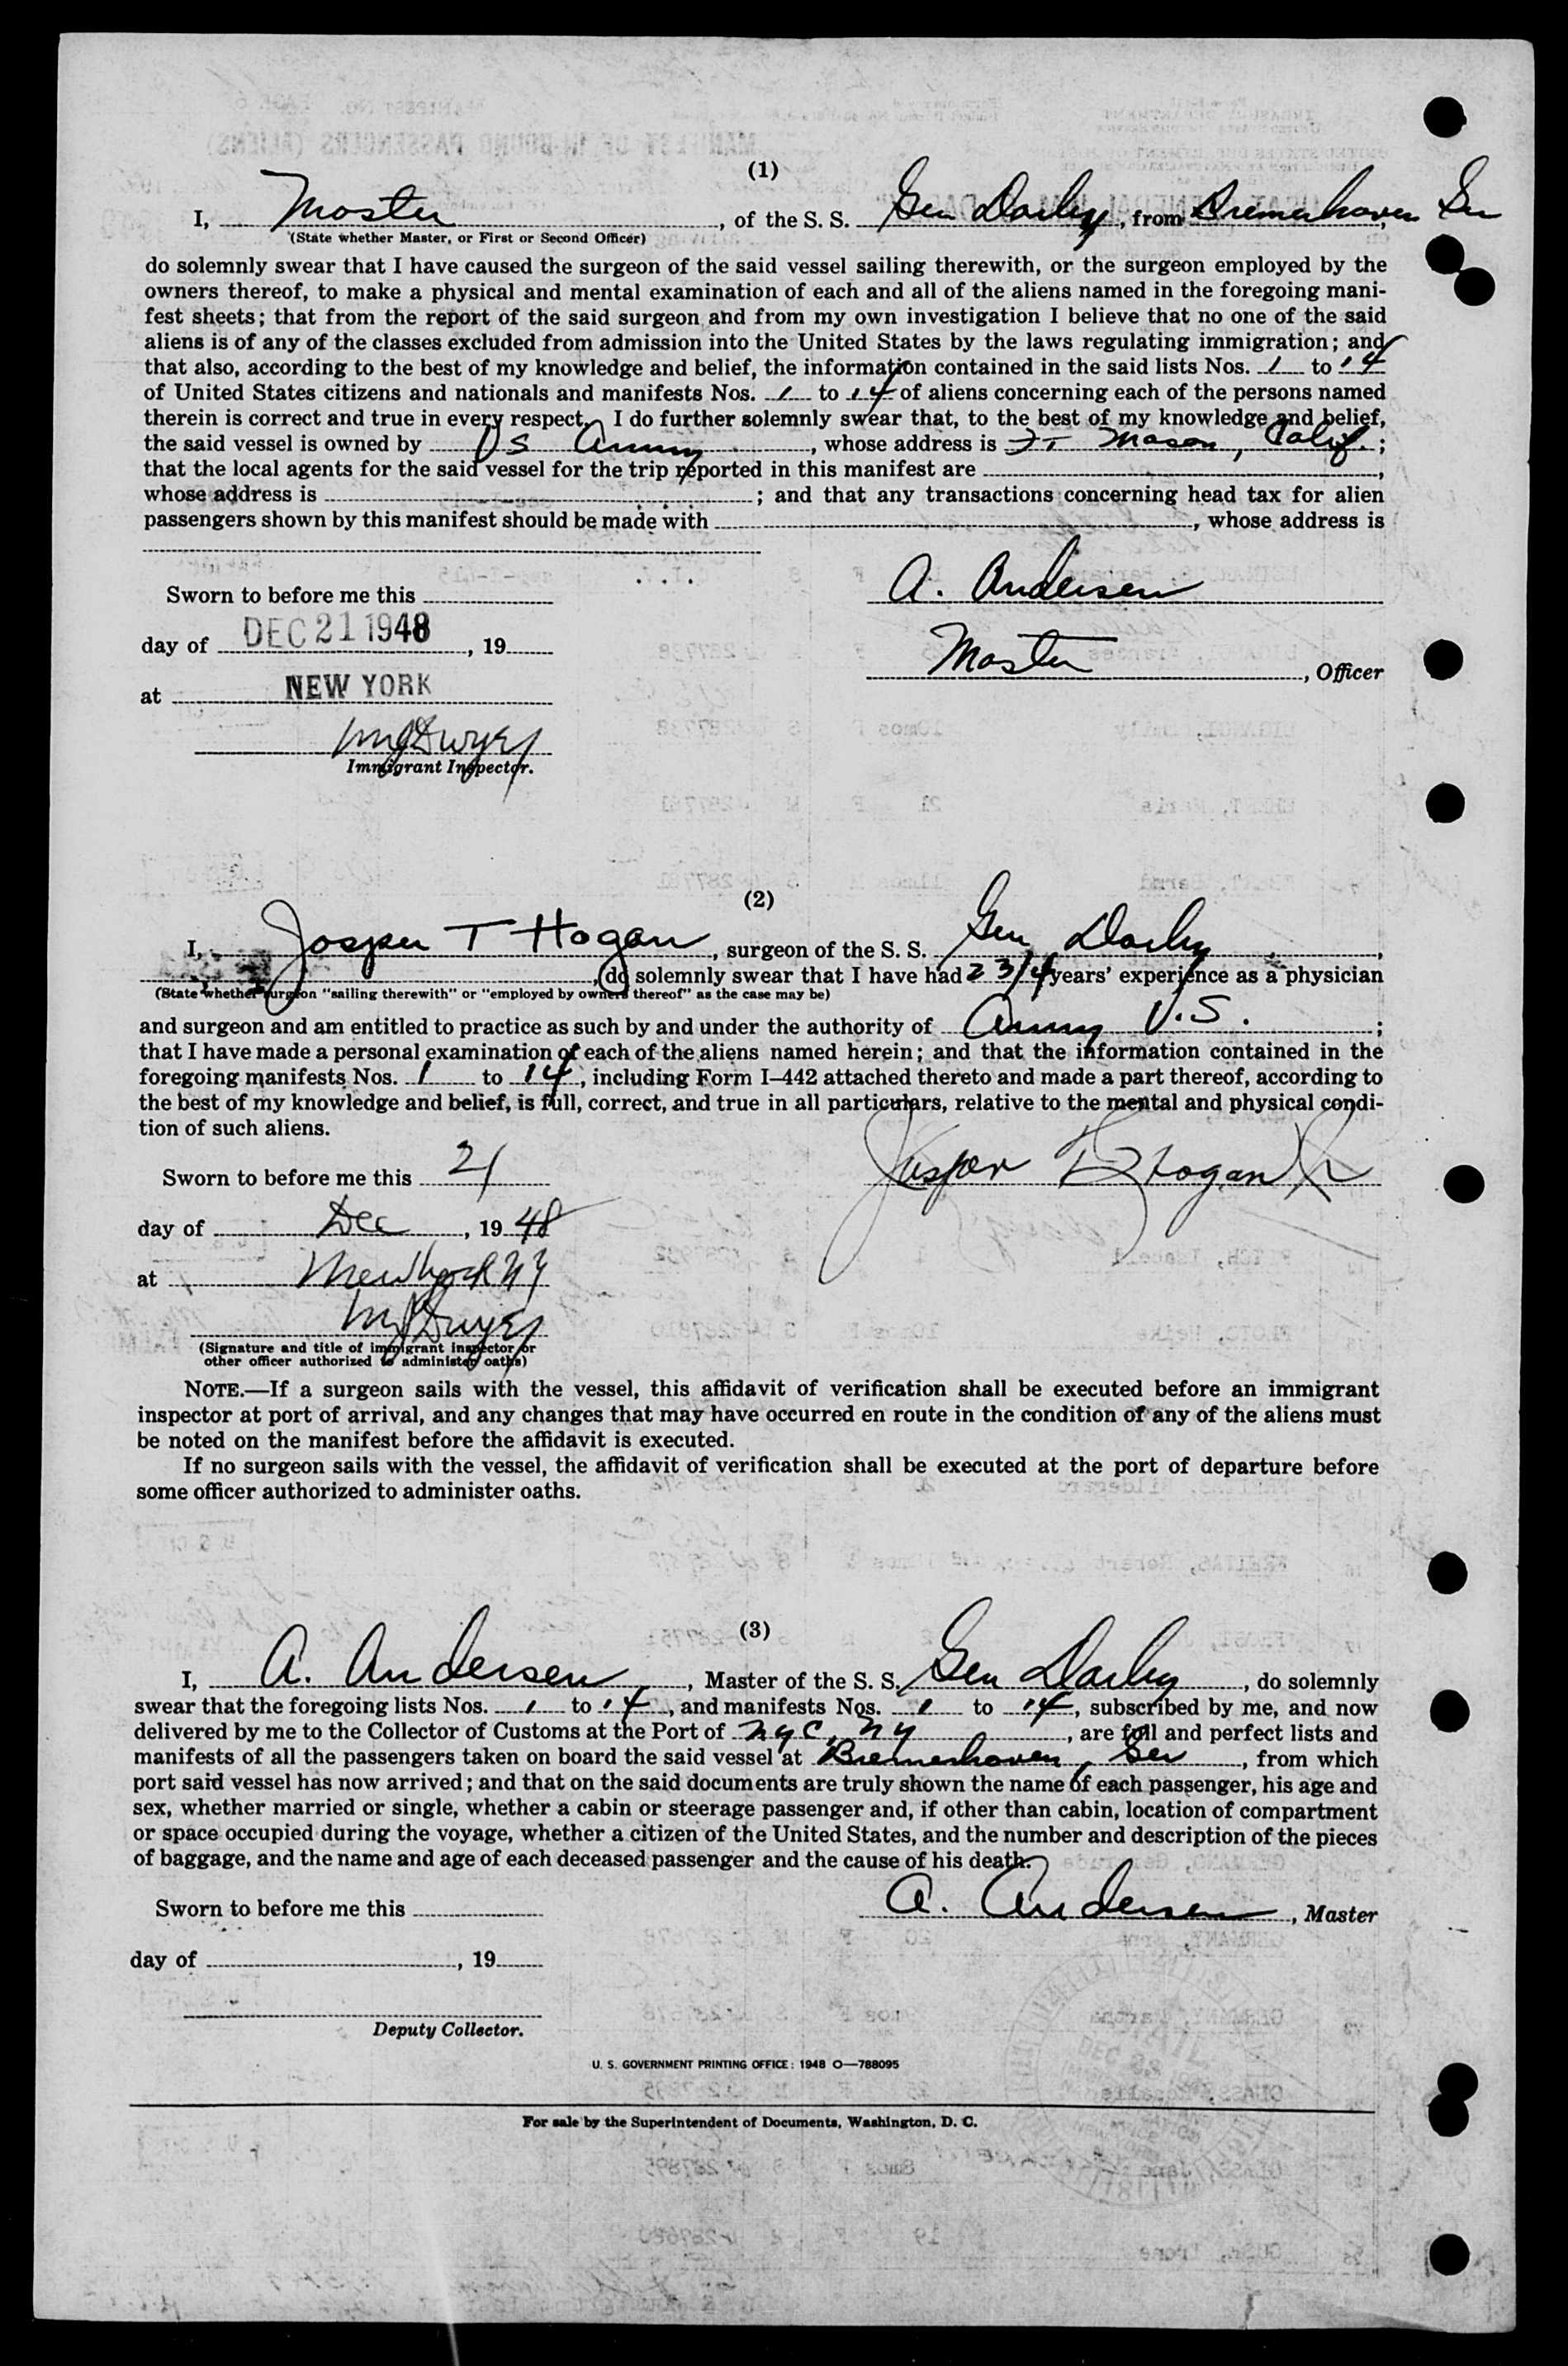 (1)
I, Master, of the S. S. Gen Darby, from Bremerhaven Ger
(State whether Master, or First or Second Officer)
do solemnly swear that I have caused the surgeon of the said vessel sailing therewith, or the surgeon employed by the
owners thereof, to make a physical and mental examination of each and all of the aliens named in the foregoing mani-
fest sheets; that from the report of the said surgeon and from my own investigation I believe that no one of the said
aliens is of any of the classes excluded from admission into the United States by the laws regulating immigration; and
that also, according to the best of my knowledge and belief, the information contained in the said lists Nos. 1 to 14
of United States citizens and nationals and manifests Nos. 1 to 14 of aliens concerning each of the persons named
therein is correct and true in every respect. I do further solemnly swear that, to the best of my knowledge and belief,
the said vessel is owned by US Army, whose address is Ft Mason, Calif.;
that the local agents for the said vessel for the trip reported in this manifest are ,
whose address is ; and that any transactions concerning head tax for alien
passengers shown by this manifest should be made with , whose address is
A. Andersen
Sworn to before me this
day of DEC 21 1948, 19
Master, Officer
at NEW YORK
MJ Dwyer
Immigrant Inspector.
(2)
I, Jasper T Hogan, surgeon of the S. S. Gen Darby,
, do solemnly swear that I have had 2 3/4 years' experience as a physician
(State whether surgeon "sailing therewith" or "employed by owners thereof" as the case may be)
and surgeon and am entitled to practice as such by and under the authority of Army U.S. ;
that I have made a personal examination of each of the aliens named herein; and that the information contained in the
foregoing manifests Nos. 1 to 14, including Form I-442 attached thereto and made a part thereof, according to
the best of my knowledge and belief, is full, correct, and true in all particulars, relative to the mental and physical condi-
tion of such aliens.
Jasper T Hogan Jr
Sworn to before me this 21
day of Dec, 19 48
at New York NY
MJ Dwyer
(Signature and title of immigrant inspector or
other officer authorized to administer oaths)
NOTE.—If a surgeon sails with the vessel, this affidavit of verification shall be executed before an immigrant
inspector at port of arrival, and any changes that may have occurred en route in the condition of any of the aliens must
be noted on the manifest before the affidavit is executed.
If no surgeon sails with the vessel, the affidavit of verification shall be executed at the port of departure before
some officer authorized to administer oaths.
(3)
I, A. Andersen, Master of the S. S. Gen Darby, do solemnly
swear that the foregoing lists Nos. 1 to 14, and manifests Nos. 1 to 14, subscribed by me, and now
delivered by me to the Collector of Customs at the Port of NYC, NY, are full and perfect lists and
manifests of all the passengers taken on board the said vessel at Bremerhaven, Ger, from which
port said vessel has now arrived; and that on the said documents are truly shown the name of each passenger, his age and
sex, whether married or single, whether a cabin or steerage passenger and, if other than cabin, location of compartment
or space occupied during the voyage, whether a citizen of the United States, and the number and description of the pieces
of baggage, and the name and age of each deceased passenger and the cause of his death.
A. Andersen, Master
Sworn to before me this
day of , 19
Deputy Collector.
U. S. GOVERNMENT PRINTING OFFICE: 1948 O—788095
For sale by the Superintendent of Documents, Washington, D. C.